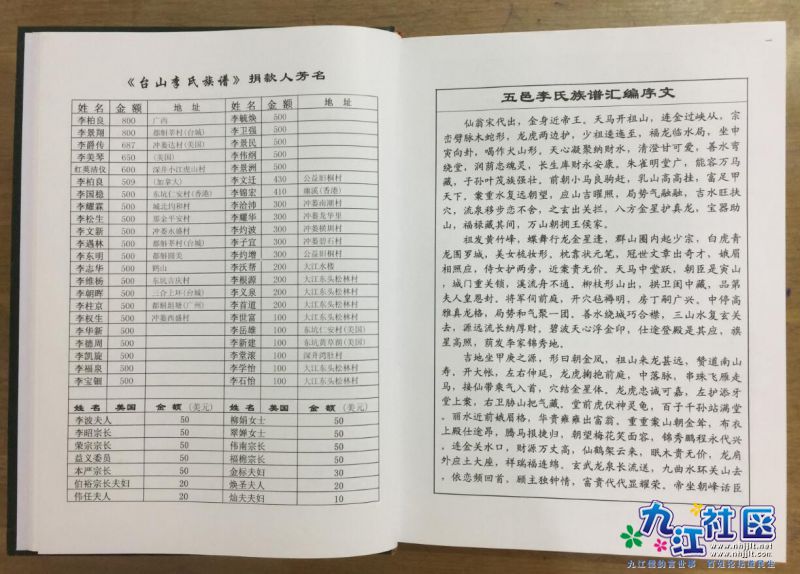 《台山李氏族谱》捐款人芳名
姓名 金额 地址 姓名 金额 地址
李柏良 800 广西 李毓焕 500
李景翔 800 都斛莘村(台城) 李卫强 500
李爵传 687 冲蒌达村(美国) 李景民 500
李美琴 650 (美国) 李伟纲 500
红英清仪 600 深井小江虎山村 李景洲 500
李柏良 509 (加拿大) 李文廷 430 公益旧桐村
李国稳 500 东坑仁安村(香港) 李锦宏 410 濂溪(香港)
李耀霖 500 城北约和村 李治沛 300 冲蒌南潮村
李松生 500 那金平安村 李耀华 300 冲蒌龙华里
李文新 500 冲蒌永盛村 李灼波 300 冲蒌横圳村
李遇林 500 都斛莘村(台城) 李子宜 300 冲蒌碧石村
李东明 500 都斛圆美 李灼增 300 公益旧桐村
李志华 500 鹤山 李沃帮 200 大江水楼
李维杨 500 东坑吉庆村 李根源 200 大江东头松林村
李朝晖 500 三合上环(台城) 李义泉 200 大江东头松林村
李柱京 500 都斛坦塘(广州) 李首道 200 大江东头松林村
李权生 500 冲蒌西盛村 李世富 100 大江东头松林村
李华新 500 李岳雄 100 东坑仁安村(美国)
李德周 500 李新建 100 东坑黄草蓢(美国)
李凯旋 500 李堂滚 100 深井湾肚村
李福泉 500 李学怡 100 大江东头松林村
李宝钿 500 李石怡 100 大江东头松林村
姓名 美国 金额(美元) 姓名 美国 金额(美元)
李波夫人 50 柳娟女士 50
李昭宗长 50 翠婵女士 50
荣宗宗长 50 伟南宗长 50
益义委员 50 福榜宗长 50
本严宗长 50 金标夫妇 30
伯裕宗长夫妇 20 焕圣夫人 20
伟任夫人 20 灿夫夫妇 10
五邑李氏族谱汇编序文
仙翁宋代出，金身近帝王。天马开祖山，连金过峡从，宗
峦劈脉木蛇形，龙虎两边护，少祖逶迤至，福龙临水局，坐申
寅向卦，喝作犬山形。天心凝聚纳财水，清澄甘可爱，善水弯
绕堂，润荫忠魂灵，长生库财永安康。朱雀明堂广，能容万马
藏，子孙叶茂族强壮。前朝小马良驹赶，乳山高高挂，富足甲
天下。案重水复远朝望，应山吉曜照，局势气融融，吉水旺扶
穴，流泉移步恋不舍，之玄出关拦，八方金星护真龙，宝器助
山，福椽藏其间，万山朝拥王侯家。
祖发黄竹峰，蝶舞行龙金星逢，群山圈内起少宗，白虎青
龙围罗城，美女梳妆形。枕靠状元笔，冠世文章出奇才，娥眉
相照应，侍女护两旁，近案贵无价。天马中堂跃，朝臣是寅山
，城门重关锁，溪流舟不通。柳枝形山出，拱卫闺中藏，品第
夫人皇恩封。将军伺前庭，开穴毡褥明，房丁嗣广兴。中停高
雅真龙格，局势和气聚一团。善水绕城巧合襟，三山水复玄关
去，源远流长纳厚财。碧波天心浮金印，仕途登殿是其应，旗
星高照，荫发李家锦秀地。
吉地坐甲庚之源，形曰朝金凤，祖山来龙甚远，赞道南山
寿。开大帐，左右伸延，龙虎掬抱前庭，中落脉，串珠飞雁走
马，接仙带乘气入首，穴结金星体。龙虎忠诚可嘉，左护添牙
堂上案，右卫胁山把气藏。堂前虎伏神灵龟，百子千孙站满堂
。丽水近前娥眉格，华贵雍雍出富翁。重重案山朝金銮，布衣
上殿仕途昂，腾马报捷归，朝堂梅花笑面容，锦秀鹏程永代兴
，连金关水口，财源万丈高，仙鹤架云来，眠木贵无价，龙肩
外应土大座，祥瑞福连绵。玄武龙泉长流送，九曲水环关山去
，依恋频回首，顾主独钟情，富贵代代显耀荣。帝坐朝峰话臣
九江社区
www.nnjjlt.net
www.nnjjlt.com